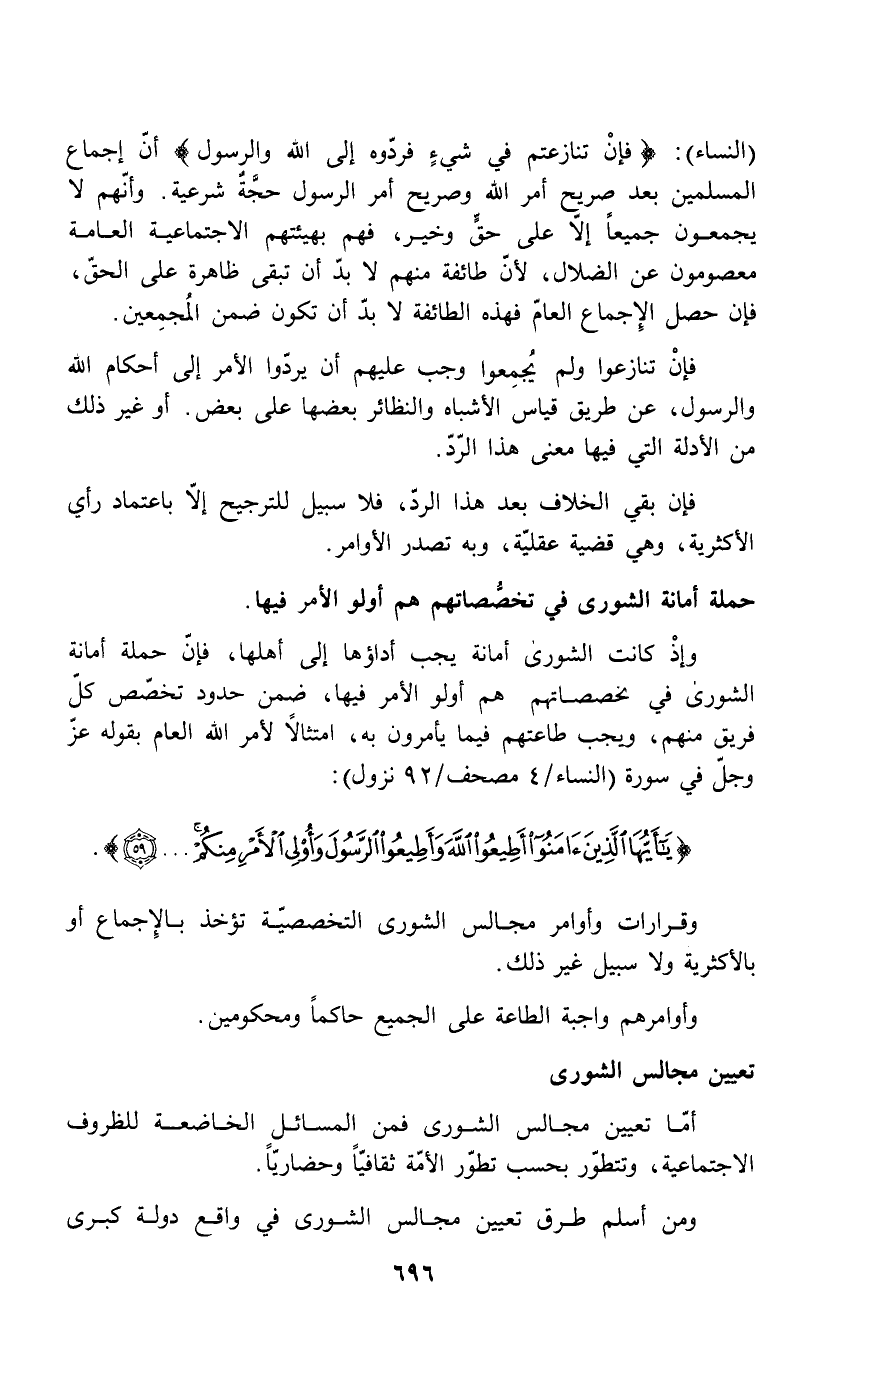 (النساء): ﴿ فإنْ تنازعتم في شيءٍ فردّوه إلى الله والرسول ﴾ أنّ إجماع
المسلمين بعد صريح أمر الله وصريح أمر الرسول حجَّةٌ شرعية. وأنّهم لا
يجمعـون جميعاً إلاّ على حقٍّ وخيـر، فهم بهيئتهم الاجتماعيـة العـامـة
معصومون عن الضلال، لأنّ طائفة منهم لا بدّ أن تبقى ظاهرة على الحقّ،
فإن حصل الإِجماع العامّ فهذه الطائفة لا بدّ أن تكون ضمن المُجمِعين.
فإنْ تنازعوا ولم يُجمِعوا وجب عليهم أن يردّوا الأمر إلى أحكام الله
والرسول، عن طريق قياس الأشباه والنظائر بعضها على بعض. أو غير ذلك
من الأدلة التي فيها معنى هذا الرّدّ.
فإن بقي الخلاف بعد هذا الردّ، فلا سبيل للترجيح إلّا باعتماد رأي
الأكثرية، وهي قضية عقليّة، وبه تصدر الأوامر.
حملة أمانة الشورى في تخصُّصاتهم هم أولو الأمر فيها.
وإذْ كانت الشورىٰ أمانة يجب أداؤها إلى أهلها، فإنّ حملة أمانة
الشورىٰ في تخصصـاتهم هم أولو الأمر فيها، ضمـن حدود تخصّص كلّ
فريق منهم، ويجب طاعتهم فيما يأمرون به، امتثالاً لأمر الله العام بقوله عزّ
وجلّ في سورة (النساء/٤ مصحف/٩٢ نزول):
﴿ يَـٰٓأَيُّهَا ٱلَّذِينَ ءَامَنُوٓا۟ أَطِيعُوا۟ ٱللَّهَ وَأَطِيعُوا۟ ٱلرَّسُولَ وَأُو۟لِى ٱلْأَمْرِ مِنكُمْۖ ... ٥٩ ﴾.
وقـرارات وأوامر مجـالس الشورى التخصصيّـة تؤخذ بـالإِجماع أو
بالأكثرية ولا سبيل غير ذلك.
وأوامرهم واجبة الطاعة على الجميع حاكماً ومحكومين.
تعيين مجالس الشورى
أمّـا تعيين مجـالس الشـورى فمن المسـائـل الخـاضعـة للظروف
الاجتماعية، وتتطوّر بحسب تطوّر الأمّة ثقافيّاً وحضاريّاً.
ومن أسلم طـرق تعيين مجـالس الشـورى في واقـع دولـة كبـرى
٦٩٦